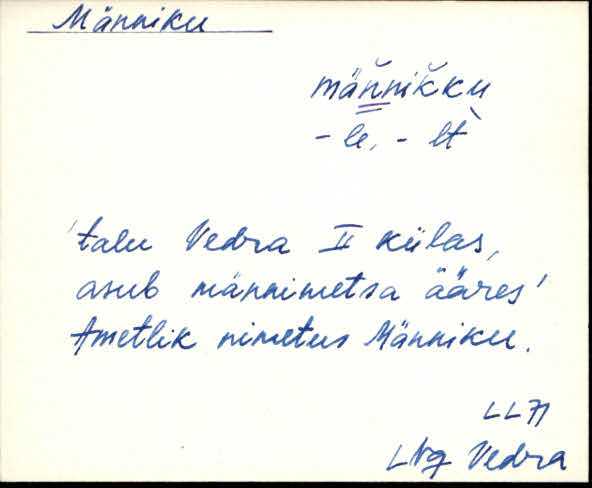 Männiku
män̆nik̆ku
-le, -lt
'talu Vedra II külas,
asub männimetsa ääres'
Ametlik nimetus Männiku.
LL71
LNg Vedra